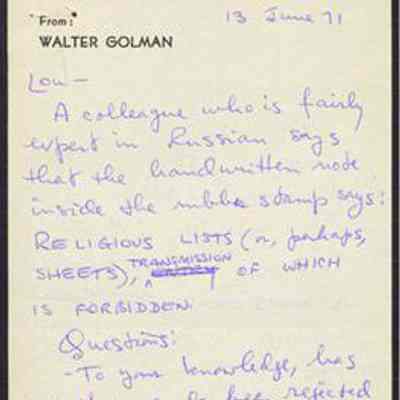 "From:"
13 June 71
WALTER GOLMAN
Lou —
A colleague who is fairly
expert in Russian says
that the handwritten note
inside the rubber stamp says:
RELIGIOUS LISTS (or, perhaps,
SHEETS), TRANSMISSION OF WHICH
IS FORBIDDEN.
Questions:
- To your knowledge, has
been rejected